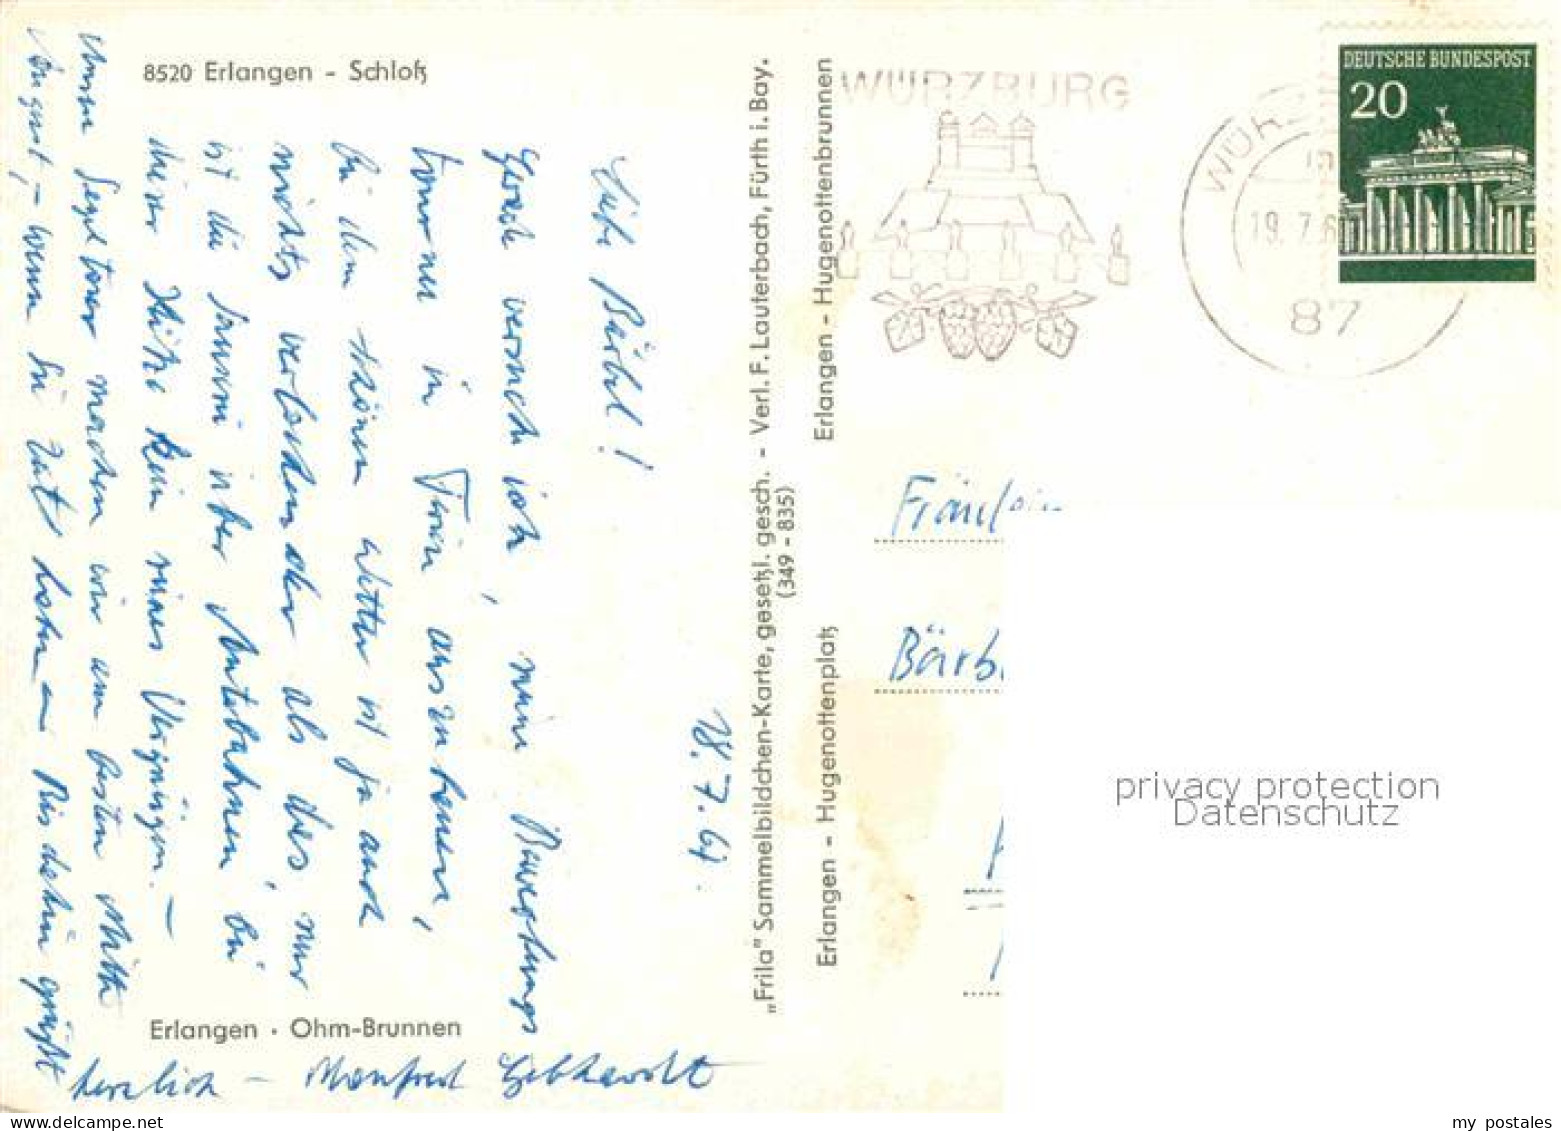 8520 Erlangen - Schloß
Erlangen · Ohm-Brunnen
„Frila" Sammelbildchen-Karte, gesetzl. gesch. - Verl. F. Lauterbach, Fürth i. Bay.
(349 - 835)
Erlangen - Hugenottenplatz
Erlangen - Hugenottenbrunnen
18. 7. 67.
Liebe Bärbel!
Gerade versuche ich, meine Bewerbungs
tournee in Türen
bei dem schönen Wetter ist ja auch
nichts verlockender als das, nur
ist die Fahrerei über Autobahnen bei
dieser Hitze kein reines Vergnügen. —
Unsere Segeltour machen wir am besten Mitte
August, - wenn Sie Zeit haben - Bis dahin grüßt
herzlich - Manfred Gebhardt
WÜRZBURG
WÜRZ
19. 7. 6
87
DEUTSCHE BUNDESPOST
20
Fräulein
Bärb
privacy protection
Datenschutz
my postales